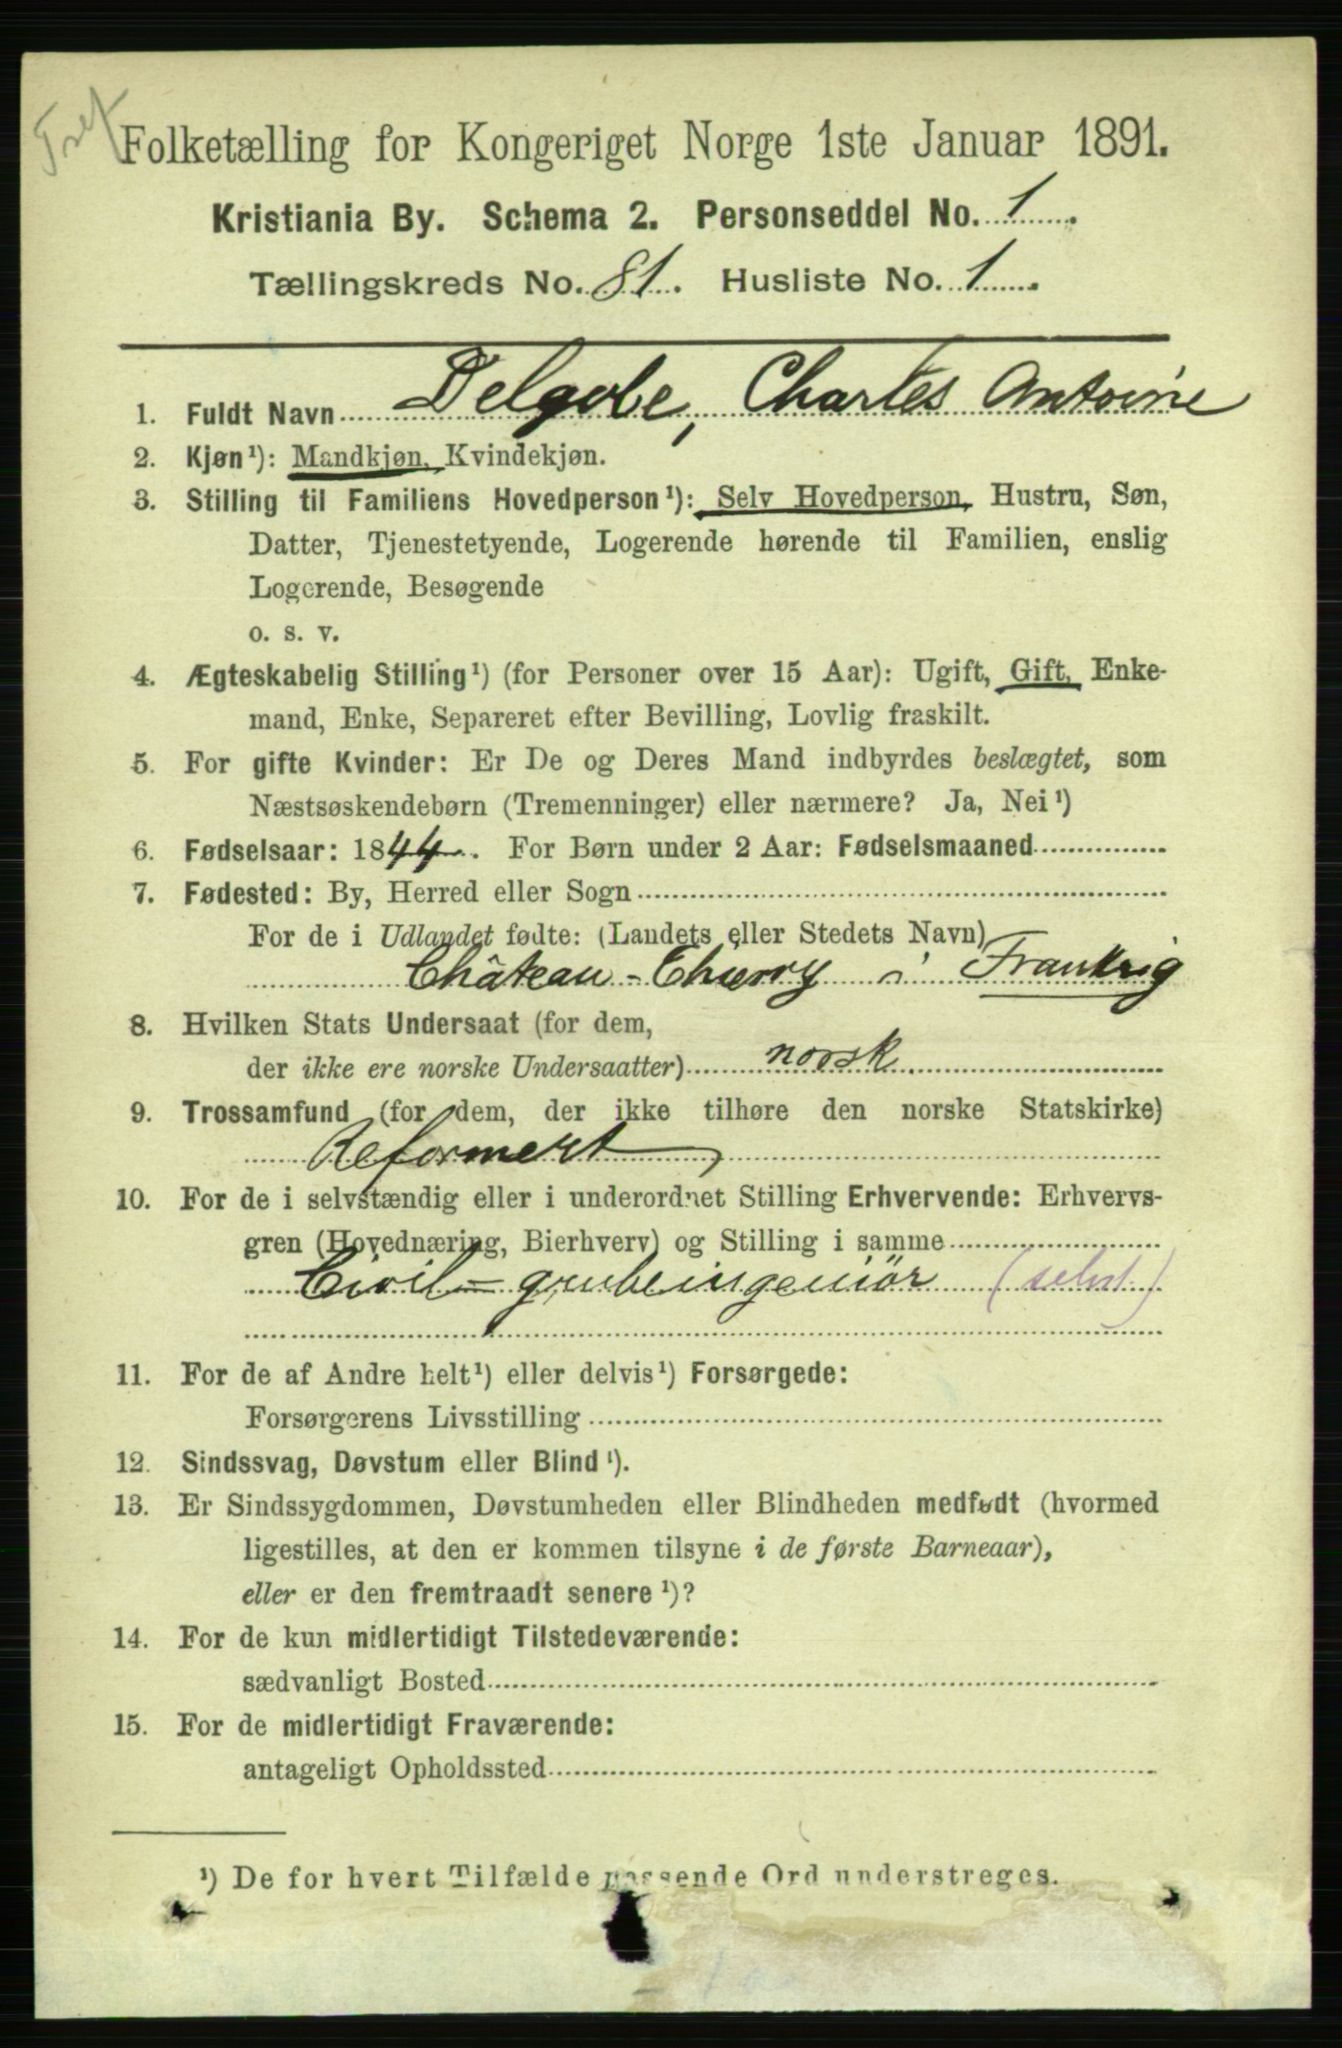 Folketælling for Kongeriget Norge 1ste Januar 1891.
Kristiania By. Schema 2. Personseddel No. 1.
Tællingskreds No. 81. Husliste No. 1.
1. Fuldt Navn Delgobe, Charles Antoine
2. Kjøn¹): Mandkjøn, Kvindekjøn.
3. Stilling til Familiens Hovedperson¹): Selv Hovedperson, Hustru, Søn,
Datter, Tjenestetyende, Logerende hørende til Familien, enslig
Logerende, Besøgende
o. s. v.
4. Ægteskabelig Stilling¹) (for Personer over 15 Aar): Ugift, Gift, Enke-
mand, Enke, Separeret efter Bevilling, Lovlig fraskilt.
5. For gifte Kvinder: Er De og Deres Mand indbyrdes beslægtet, som
Næstsøskendebørn (Tremenninger) eller nærmere? Ja, Nei¹)
6. Fødselsaar: 1844. For Børn under 2 Aar: Fødselsmaaned
7. Fødested: By, Herred eller Sogn
For de i Udlandet fødte: (Landets eller Stedets Navn)
Château-Thierry i Frankrig
8. Hvilken Stats Undersaat (for dem,
der ikke ere norske Undersaatter) norsk
9. Trossamfund (for dem, der ikke tilhøre den norske Statskirke)
Reformert
10. For de i selvstændig eller i underordnet Stilling Erhvervende: Erhvervs-
gren (Hovednæring, Bierhverv) og Stilling i samme
Civil=grubeingeniör (selvst.)
11. For de af Andre helt¹) eller delvis¹) Forsørgede:
Forsørgerens Livsstilling
12. Sindssvag, Døvstum eller Blind¹).
13. Er Sindssygdommen, Døvstumheden eller Blindheden medfødt (hvormed
ligestilles, at den er kommen tilsyne i de første Barneaar),
eller er den fremtraadt senere¹)?
14. For de kun midlertidigt Tilstedeværende:
sædvanligt Bosted
15. For de midlertidigt Fraværende:
antageligt Opholdssted
¹) De for hvert Tilfælde passende Ord understreges.